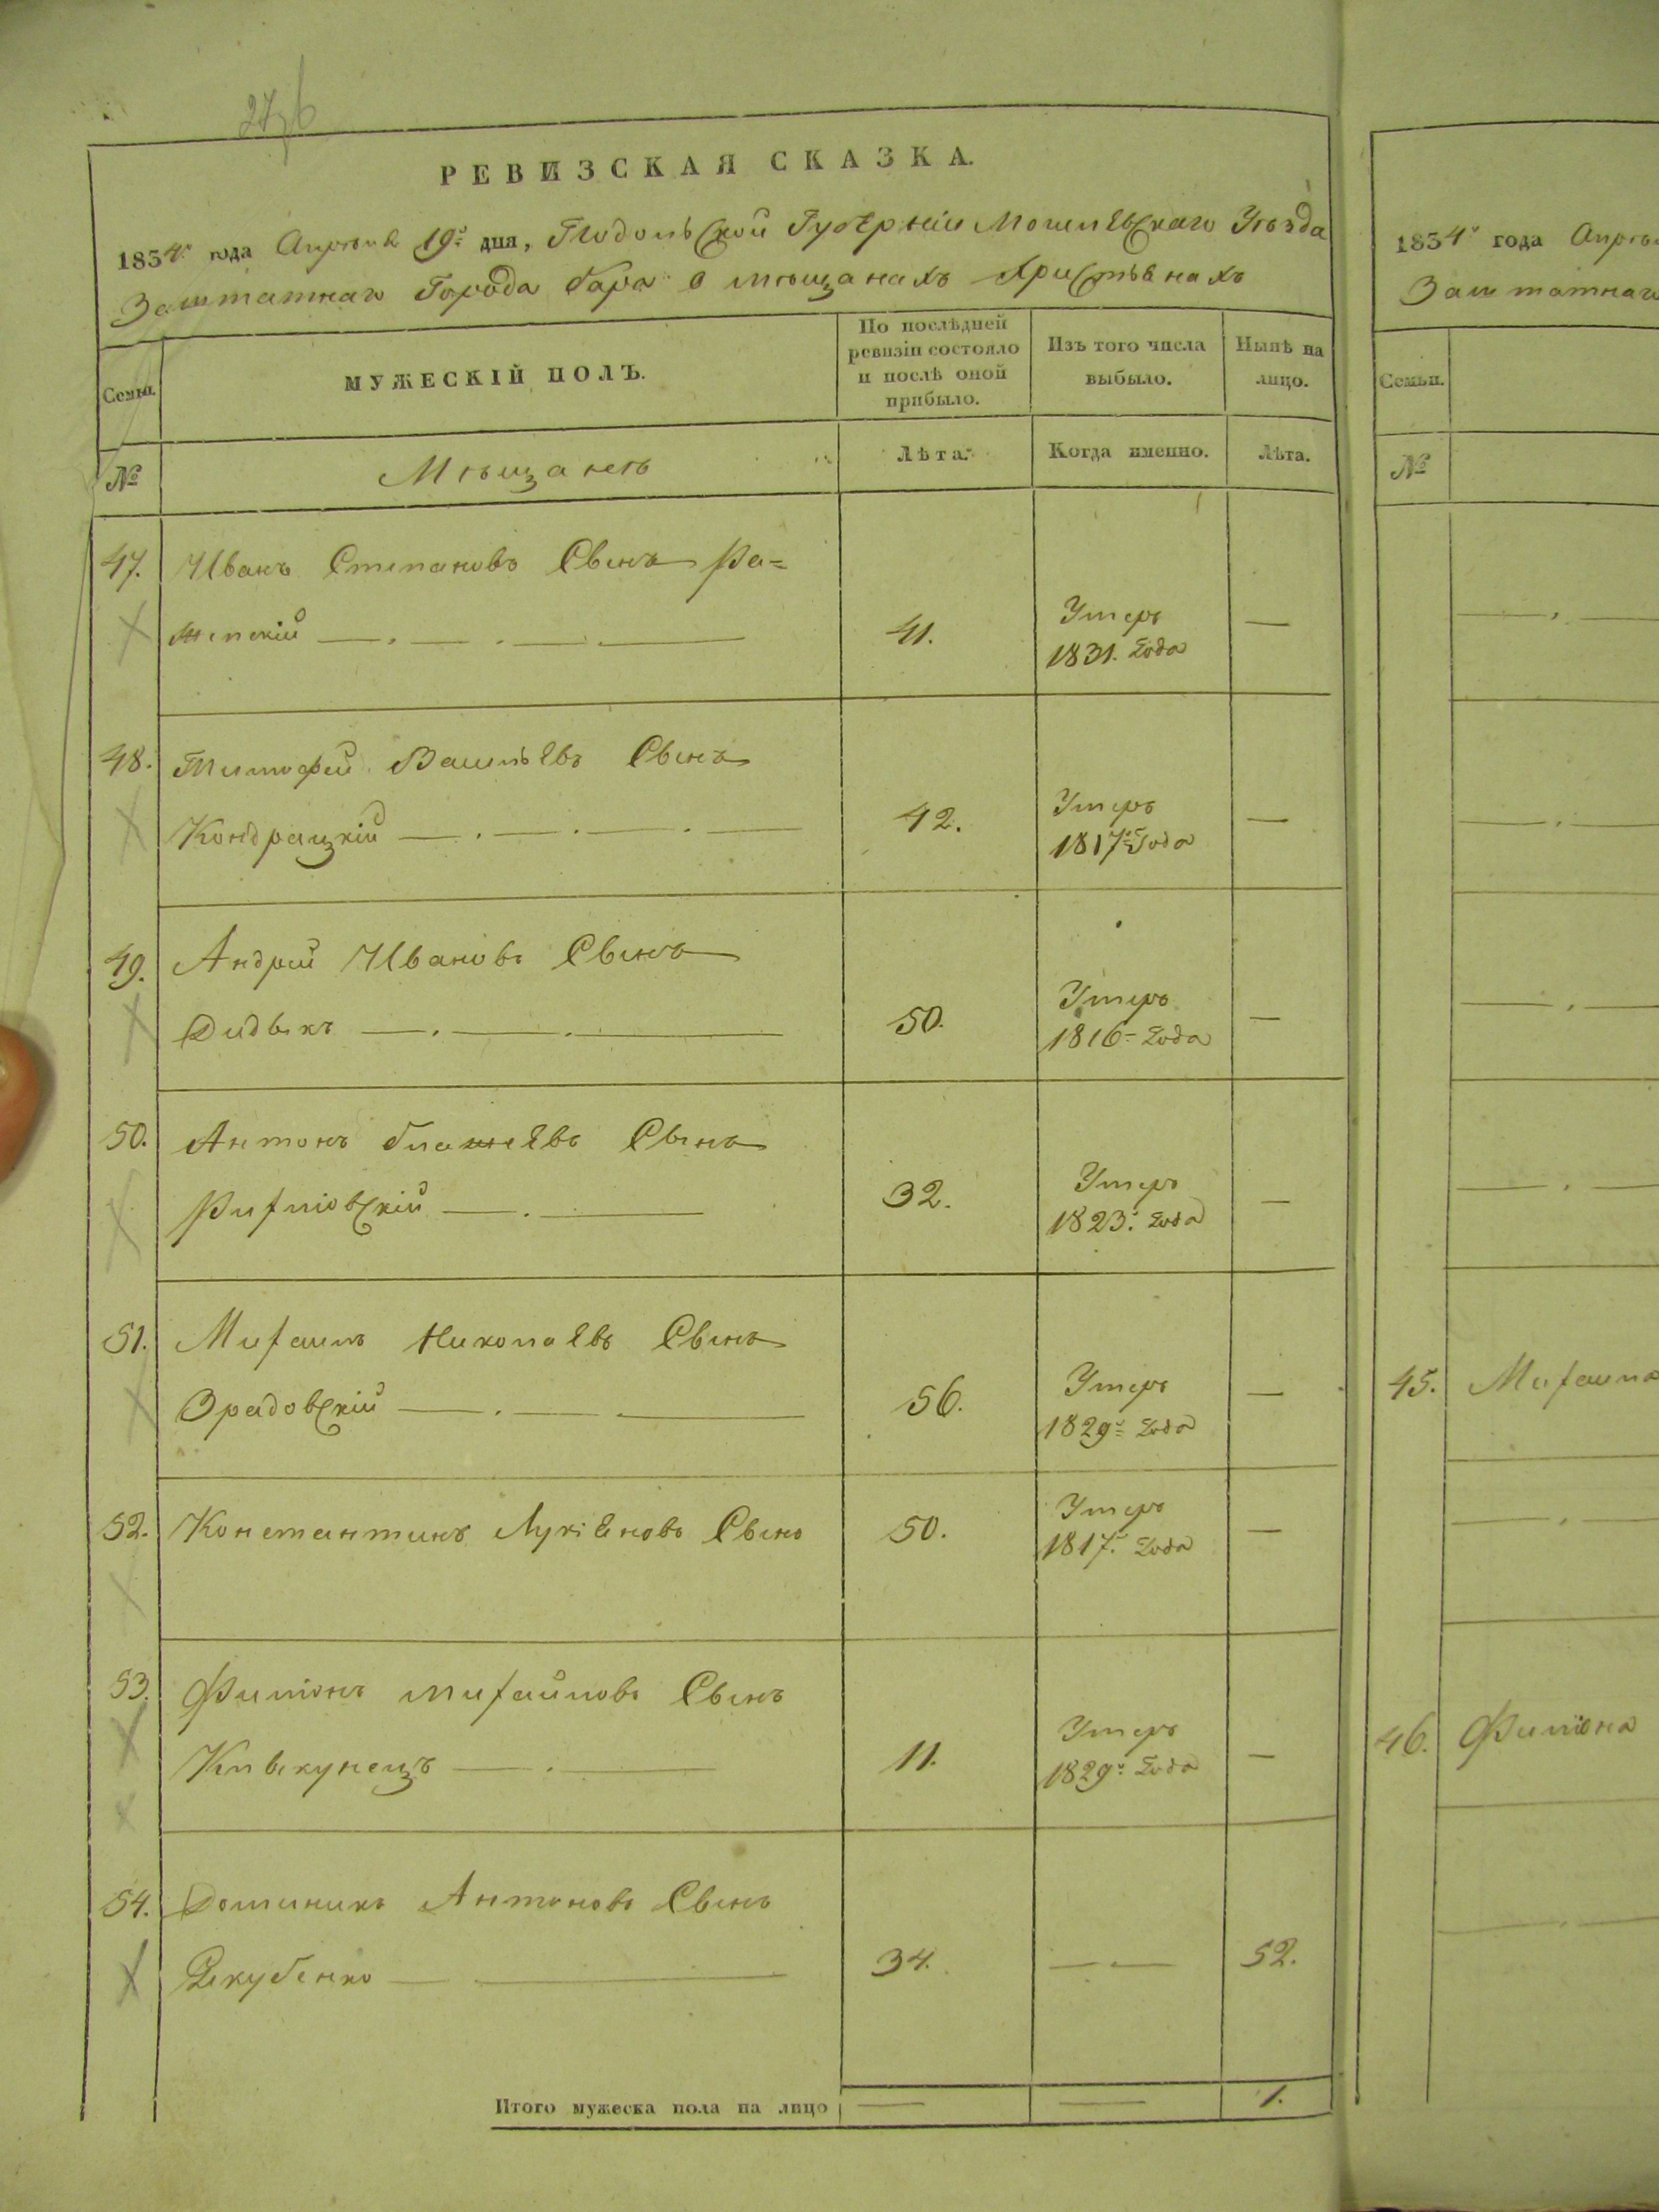 276
РЕВИЗСКАЯ СКАЗКА.
1834 года Апреля 19 дня, Подольской Губерніи Могилевскаго Уезда
Заштатнаго Города Бара о мещанахъ Христіянахъ
Семьи.
МУЖЕСКІЙ ПОЛЪ.
По послѣдней
ревизіи состояло
и послѣ оной
прибыло.
Изъ того числа
выбыло.
Нынѣ на
лицо.
№
Мѣщане
Лѣта.
Когда именно.
Лѣта.
47. Иванъ Степановъ Сынъ Ра=
41.
Умеръ
1831. года
—
48. Тимофей Васильевъ Сынъ
Кондрацкій
42.
Умеръ
1817 Года
—
49. Андрей Ивановъ Сынъ
Дидыкъ
50.
Умеръ
1816 года
—
50. Антонъ Блажеевъ Сынъ
32.
Умеръ
1823. года
—
51. Михаилъ Николаевъ Сынъ
Зрадовскій
56.
Умеръ
1829 года
—
52. Константинъ Лукіяновъ Сынъ
50.
Умеръ
1817. года
—
53. Филіонъ Михайловъ Сынъ
Клыкунецъ
11.
Умеръ
1829 года
—
54. Доминикъ Антоновъ Сынъ
Якубенко
34.
— —
52.
Итого мужеска пола на лицо
1.
1834 года
Заштатнаго
Семьи.
№
45. Михаила
46. Филіона